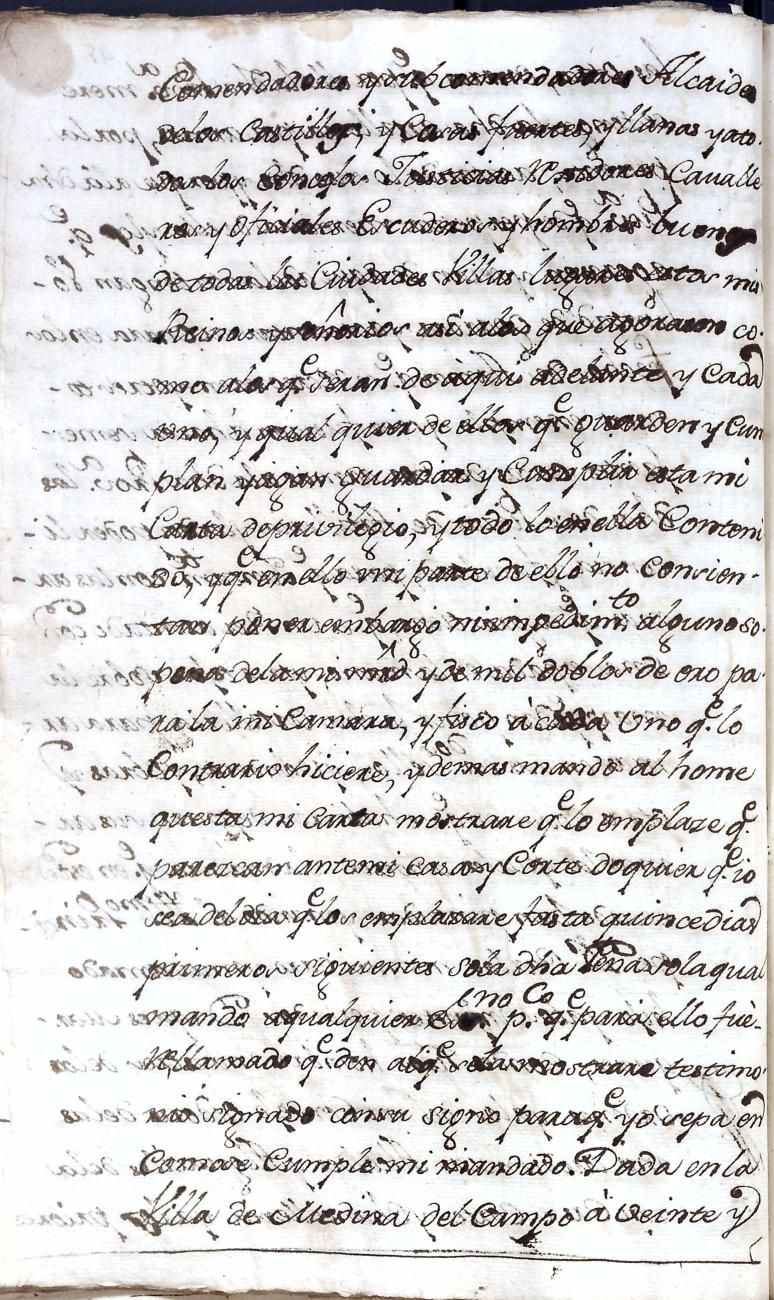 Comendadores y subcomendadores Alcaides
delos Castillos, y Casas fuertes, y llanas y ato-
dos los Concejos Justicias Regidores Cavalle
ros y oficiales Escuderos y hombres buenos
de todas las Ciudades Villas lugares destos mis
Reinos y señorios asi alos que agora son co-
mo alos q.e seran de aqui adelante y Cada
uno, y qual quier de ellos q.e guarden y Cum
plan y agan guardar y Complir esta mi
Carta de privilegio, y todo lo enella Conteni
do, y q.e en ello ni parte de ello no consien-
tan poner embargo ni impedim.to alguno so-
pena dela mi mrd y de mil doblas de oro pa-
ra la mi Camara, y fisco á cada Uno q.e lo
Contrario hiciere, y demas mando al home
questa mi Carta mostrare q.e lo emplaze q.e
parezcan antemi Casa y Corte doquier q.e io
sea del dia q.e los emplazare fasta quince dias
primeros siguientes sola dha Pena sola qual
mando aqualquier Es.no p.co q.e para ello fue-
re llamado q.e den al q.e sela mostrare testimo-
nio signado con su signo para q.e yo sepa en
Como se Cumple mi mandado. Dada en la
Villa de Medina del Campo á Veinte y